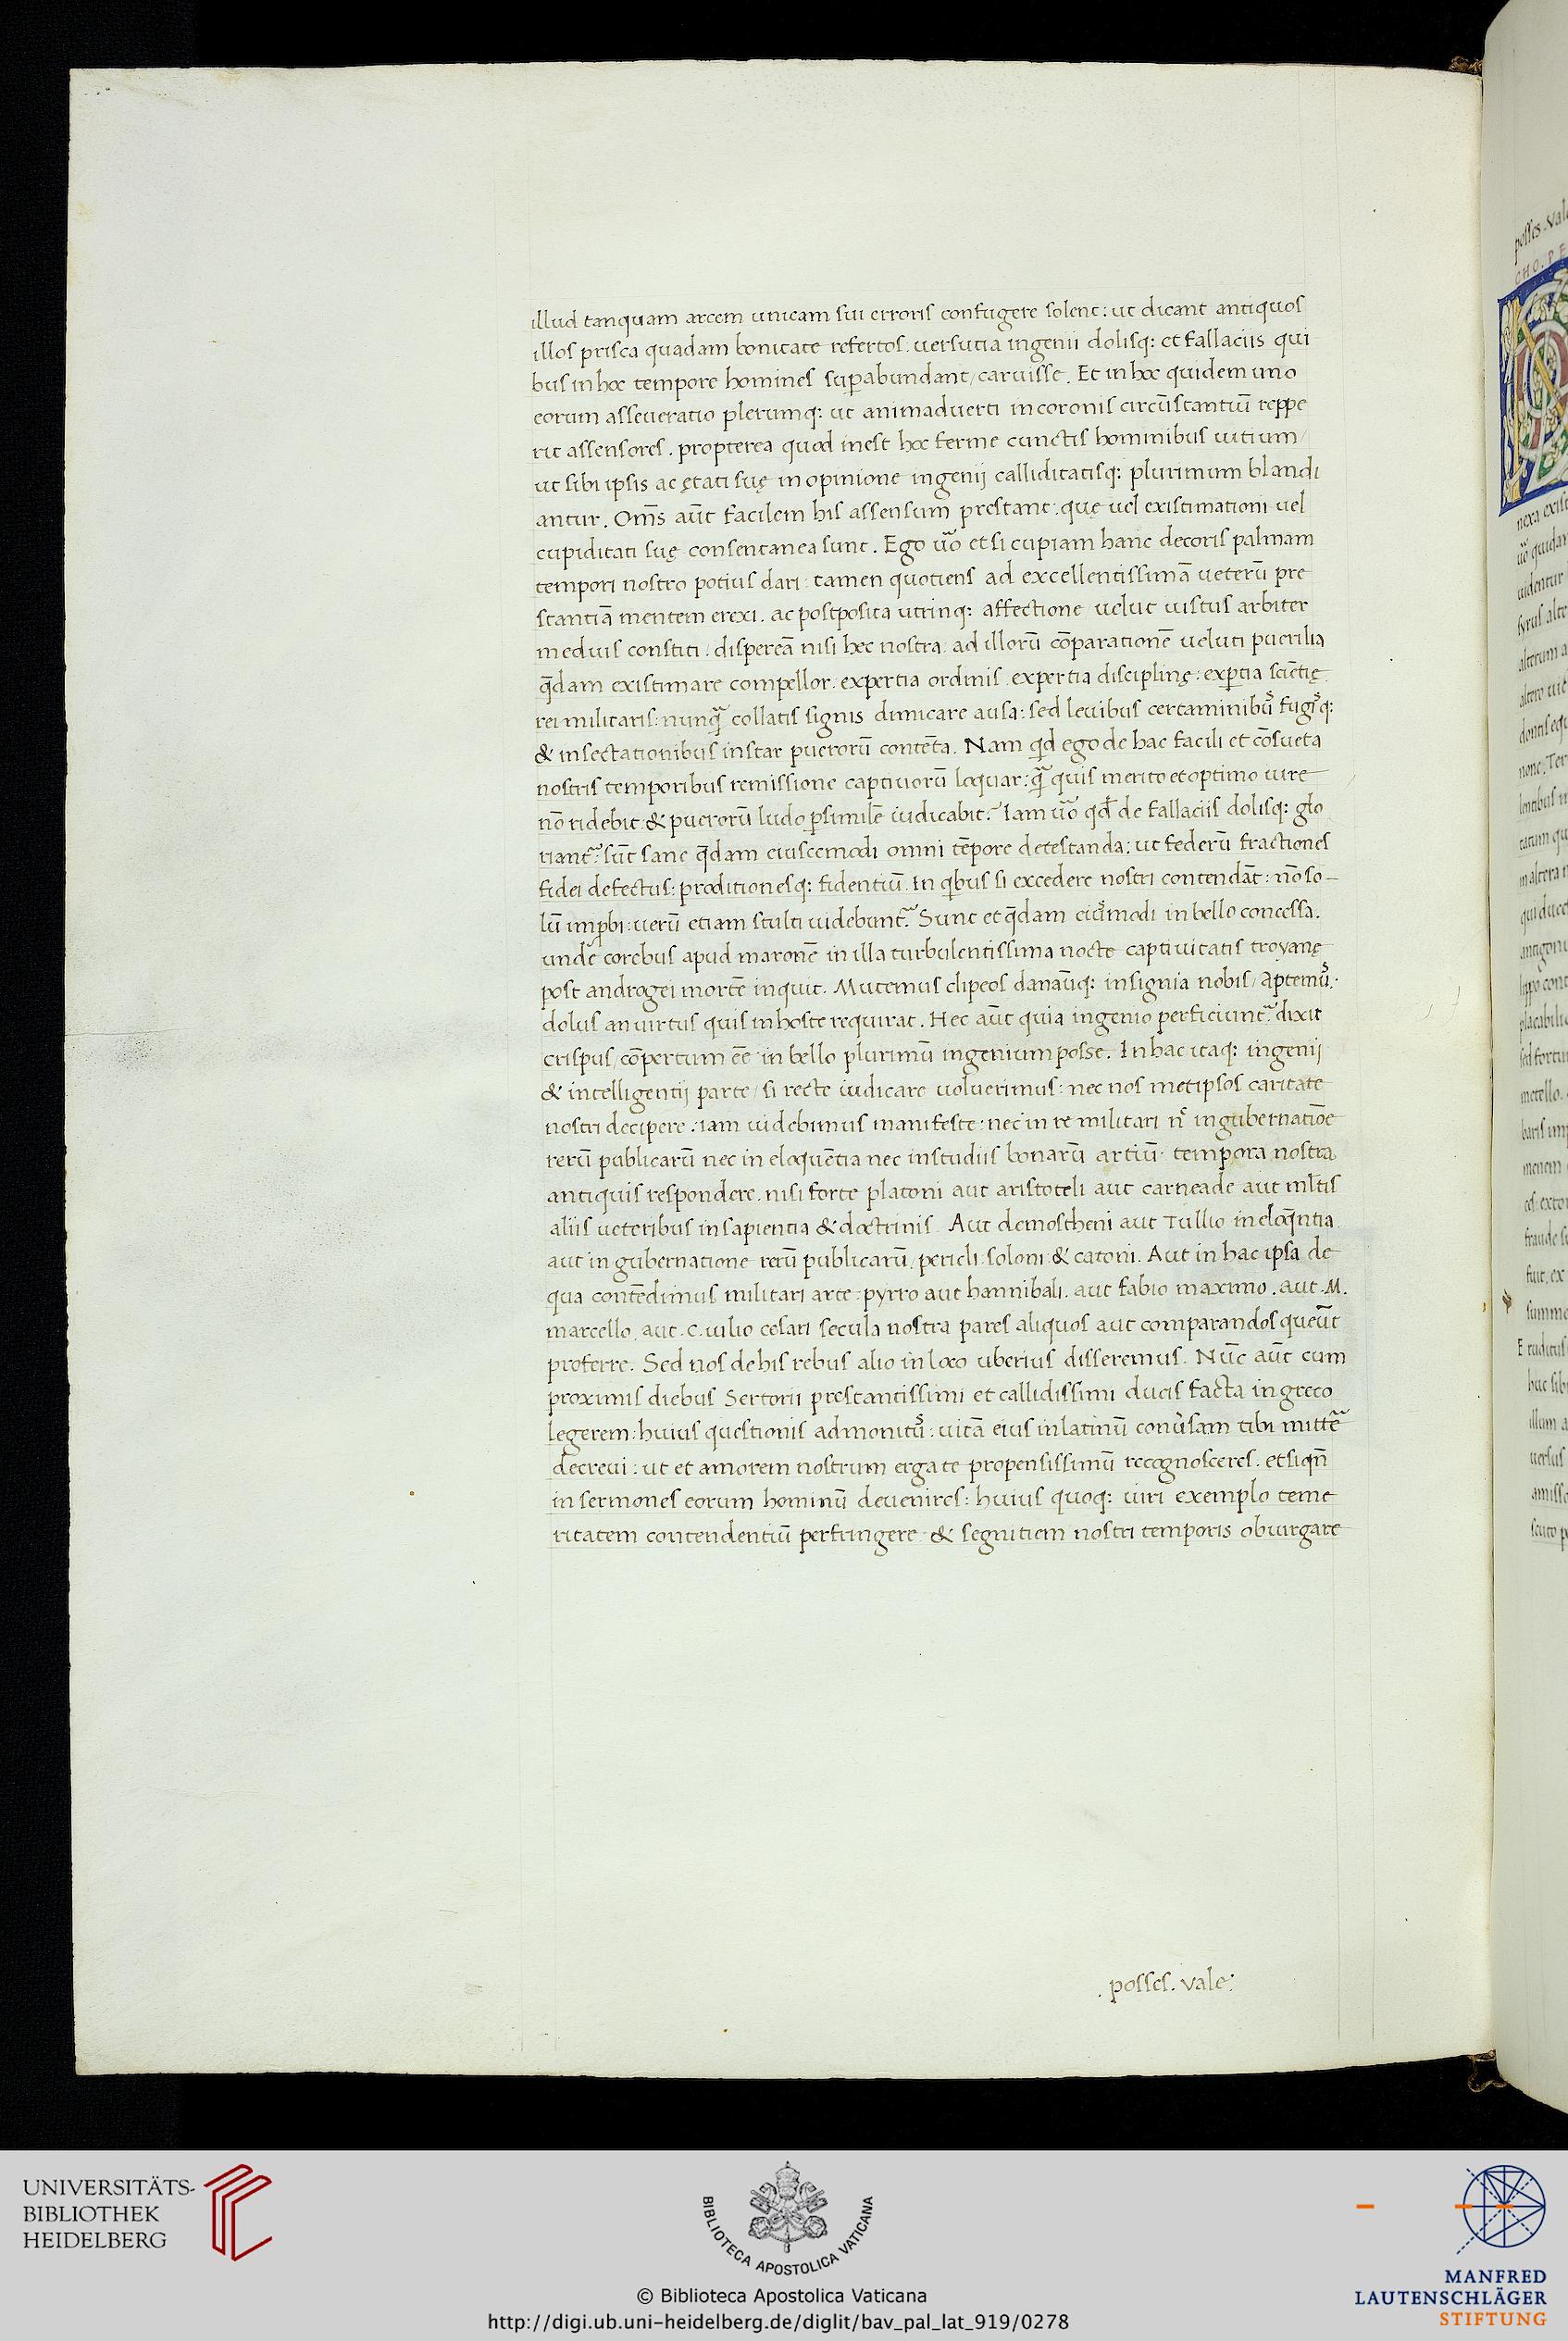 illud tanquam arcem unicam sui erroris confugere solent: ut dicant antiquos
illos prisca quadam bonitate refertos. uersutia ingenii dolisq: et fallaciis qui
bus in hoc tempore homines suꝑabundant/caruisse. Et in hoc quidem uno
eorum asseueratio plerumq: ut animaduerti in coronis circūstantiū reppe
rit assensores. propterea quod inest hoc ferme cunctis hominibus uitium/
ut sibi ipsis ac ętati suę in opinione ingenij calliditatisq: plurimum blandi
antur. Om̄s aūt facilem his assensum prestant. quę uel existimationi uel
cupiditati suę consentanea sunt. Ego ūo et si cupiam hanc decoris palmam
tempori nostro potius dari: tamen quotiens ad excellentissimā ueterū pre
stantiā mentem erexi. ac postposita utrinq: affectione uelut iustus arbiter
medius constiti: dispereā nisi hec nostra: ad illorū cōparationē ueluti puerilia
q̄dam existimare compellor. expertia ordinis. expertia disciplinę: exꝑtia sciētię
rei militaris: nunq̄ collatis signis dimicare ausa: sed leuibus certaminibꝰ fugisq:
& insectationibus instar puerorū contēta. Nam qd ego de hac facili et cōsueta
nostris temporibus remissione captiuorū loquar: q̄ quis merito et optimo iure
nō ridebit: & puerorū ludo ꝑsimilē iudicabit? Iam ūo qd̄ de fallaciis dolisq: glo
riant̄? sūt sane q̄dam eiuscemodi omni tēpore detestanda: ut federū fractiones
fidei defectus: proditionesq: fidentiū. In qbus si excedere nostri contendāt: nō so-
lū imꝓbi: uerū etiam stulti uidebunt̄. Sunt et q̄dam eiꝰmodi in bello concessa.
unde corebus apud maronē in illa turbulentissima nocte captiuitatis troyanę
post androgei mortē inquit. Mutemus clipeos danaūq: insignia nobis/aptemꝰ.
dolus an uirtus quis in hoste requirat. Hec aūt quia ingenio perficiunt̄: dixit
crispus/cōpertum eē in bello plurimū ingenium posse. In hac itaq: ingenij
& intelligentij parte/si recte iudicare uoluerimus: nec nos metipsos caritate
nostri decipere: iam uidebimus manifeste: nec in re militari nc̄ in gubernatiōe
rerū publicarū nec in eloquētia nec in studiis bonarū artiū tempora nostra
antiquis respondere. nisi forte platoni aut aristoteli aut carneade aut ml̄tis
aliis ueteribus in sapientia & doctrinis. Aut demostheni aut Tullio in eloq̄ntia
aut in gubernatione rerū publicarū. pericli: soloni: & catoni. Aut in hac ipsa de
qua contēdimus militari arte: pyrro aut hannibali. aut fabio maximo. aut .M.
marcello. aut .c. iulio cesari secula nostra pares aliquos aut comparandos queūt
proferre. Sed nos de his rebus alio in loco uberius disseremus. Nūc aūt cum
proximis diebus Sertorii prestantissimi et callidissimi ducis facta in greco
legerem: huius questionis admonitꝰ: uitā eius in latinū conūsam tibi mitte᷑
decreui: ut et amorem nostrum erga te propensissimū recognosceres. et siqn̄
in sermones eorum hominū deuenires: huius quoq: uiri exemplo teme
ritatem contendentiū perfringere & segnitiem nostri temporis obiurgare
. posses. vale:
UNIVERSITÄTS-
BIBLIOTHEK
HEIDELBERG
BIBLIOTECA APOSTOLICA VATICANA
© Biblioteca Apostolica Vaticana
http://digi.ub.uni-heidelberg.de/diglit/bav_pal_lat_919/0278
MANFRED
LAUTENSCHLÄGER
STIFTUNG